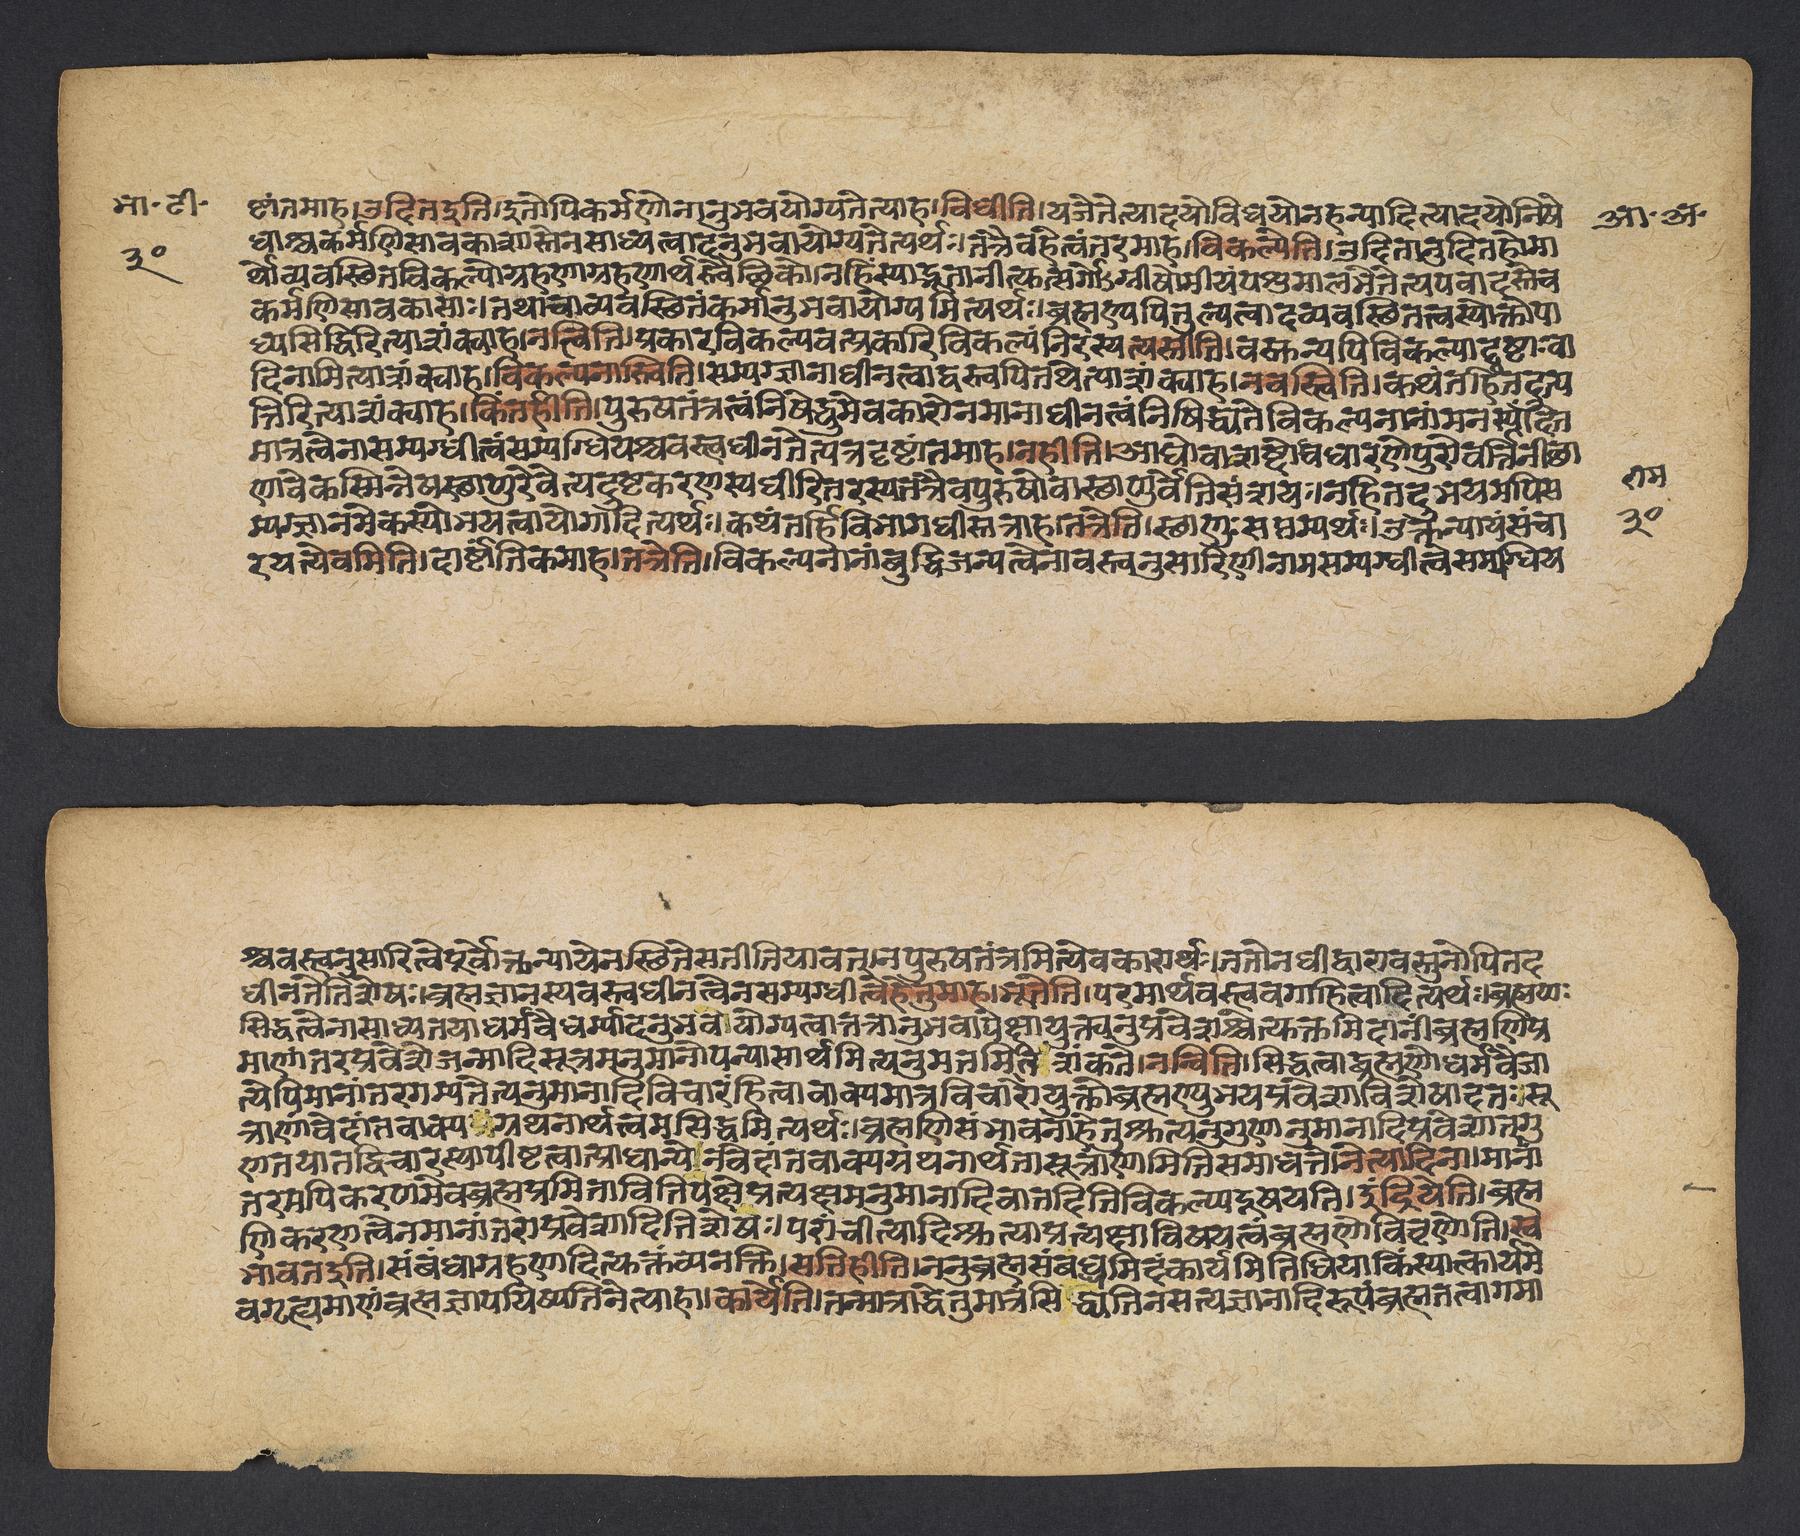 भा॰ टी॰
३०
ष्टांतमाह।उदितइति।इतोपिकर्मणोनानुभवयोग्यतेत्याह।विधीति।यजेतेत्यादयोविधयोनहन्यादित्यादयोनिषे
आ॰ अ॰
धाश्चकर्मणिसावकाशास्तेनसाध्यत्वादनुभवायोग्यतेत्यर्थः।तत्रैवहेत्वंतरमाह।विकल्पेति।उदितानुदितहोमा
र्थोव्यवस्थितविकल्पोग्रहणाग्रहणार्थस्त्वैच्छिको।नहिंस्याद्भूतानीत्युत्सर्गोऽग्नीषोमीयंपशुमालभेतेत्यपवादस्तेच
कर्मणिसावकासाः।तथाचाव्यवस्थितंकर्मानुभवायोग्यमित्यर्थः।ब्रह्मण्यपितुल्यत्वादव्यवस्थितत्वस्योक्तोपा
ध्यसिद्धिरित्याशंक्याह।नत्विति।प्रकारविकल्पवत्प्रकारिविकल्पंनिरस्यत्यस्तीति।वस्तन्यपिविकल्पादृष्टावा
दिनामित्याशंक्याह।विकल्पनास्त्विति।सम्यग्ज्ञानाधीनत्वाद्वस्त्वपितथेत्याशंक्याह।नवस्त्विति।कथंतर्हितदुत्प
त्तिरित्याशंक्याह।किंतर्हीति।पुरुषतंत्रत्वंनिषेद्धुमेवकारोनमानाधीनत्वंनिषिद्ध्यतेविकल्पनानांमनस्पंदित
मात्रत्वेनासम्यग्धीत्वंसम्यग्धियश्चवस्त्वधीनतेत्यत्रदृष्टांतमाह।नहीति।आधोवाशष्टोवधारणेपुरोवर्त्तिनीस्था
णावेकस्मिन्नेषस्थाणुरेवेत्यदुष्टकरणस्यधीरितरस्यतत्रैवपुरुषोवास्थाणुर्वेतिसंशयः।नहितदुभयमपिस
राम
३०
म्यग्ज्ञानमेकस्योभयत्वायोगादित्यर्थः।कथंतर्हिविभागधीस्तत्राह।तत्रेति।स्थाणुःसप्तम्यर्थः।उक्तन्यायंसंचा
रयत्येवमिति।दार्ष्टांतिकमाह।तत्रेति।विकल्पनानांबुद्धिजन्यत्वेनावस्त्वनुसारिणीनामसम्यग्धीत्वेसम्यग्धिय
श्चवस्त्वनुसारित्वेपूर्वोक्तन्यायेनस्थितेसतीतियावत्।नपुरुषतंत्रमित्येवकारार्थः।ततोनधीद्वारावस्तुनोपितद
धीनतेतिशेषः।ब्रह्मज्ञानस्यवस्त्वधीनत्वेनसम्यग्धीत्वेहेतुमाह।भूतेति।परमार्थवस्त्ववगाहित्वादित्यर्थः।ब्रह्मणः
सिद्धत्वेनासाध्यतयाधर्मवैधर्म्यादनुभवयोग्यत्वात्तत्रानुभवापेक्षायुक्त्यनुप्रवेशश्चेत्युक्तमिदानींब्रह्मणिप्र
माणांतरप्रवेशेजन्मादिसूत्रमनुमानोपन्यासार्थमित्यनुमतमिति शंकते।नन्विति।सिद्धत्वाद्ब्रह्मणोधर्मवैजा
त्येपिमानांतरगम्यतेत्यनुमानादिविचारंहित्वावाक्यमात्रविचारोयुक्तोब्रह्मण्युभयप्रवेशाविशेषादतःसू
त्राणांवेदांतवाक्यग्रथनार्थत्वमसिद्धमित्यर्थः।ब्रह्मणिसंभावनाहेतुश्रुत्यनुगुणानुमानादिप्रवेशात्तगु
णतयातद्विचारस्यापीष्टत्वात्प्राधान्येनवेदांतवाक्यग्रथनार्थतासूत्राणामितिसमाधत्तेनेत्यादिना।मानां
तरमपिकरणमेवब्रह्मप्रमितावितिपक्षेप्रत्यक्षमनुमानादिवातदितिविकल्प्यदूषयति।इंद्रियेति।ब्रह्म
णिकरणत्वेनमानांतराप्रवेशादितिशेषः।परांचीत्यादिश्रुत्याप्रत्यक्षाविषयत्वंब्रह्मणोविवृणोति।स्व
भावतइति।संबंधाग्रहणादित्युक्तंव्यनक्ति।सतिहीति।ननुब्रह्मसंबद्धमिदंकार्यमितिधियाकिंस्यात्कार्यमे
वगृह्यमाणंब्रह्मज्ञापयिष्यतिनेत्याहा।कार्येति।तन्मात्राद्धेतुमात्रंसि द्ध्यतिनसत्यज्ञानादिरूपंब्रह्मतत्वागमा